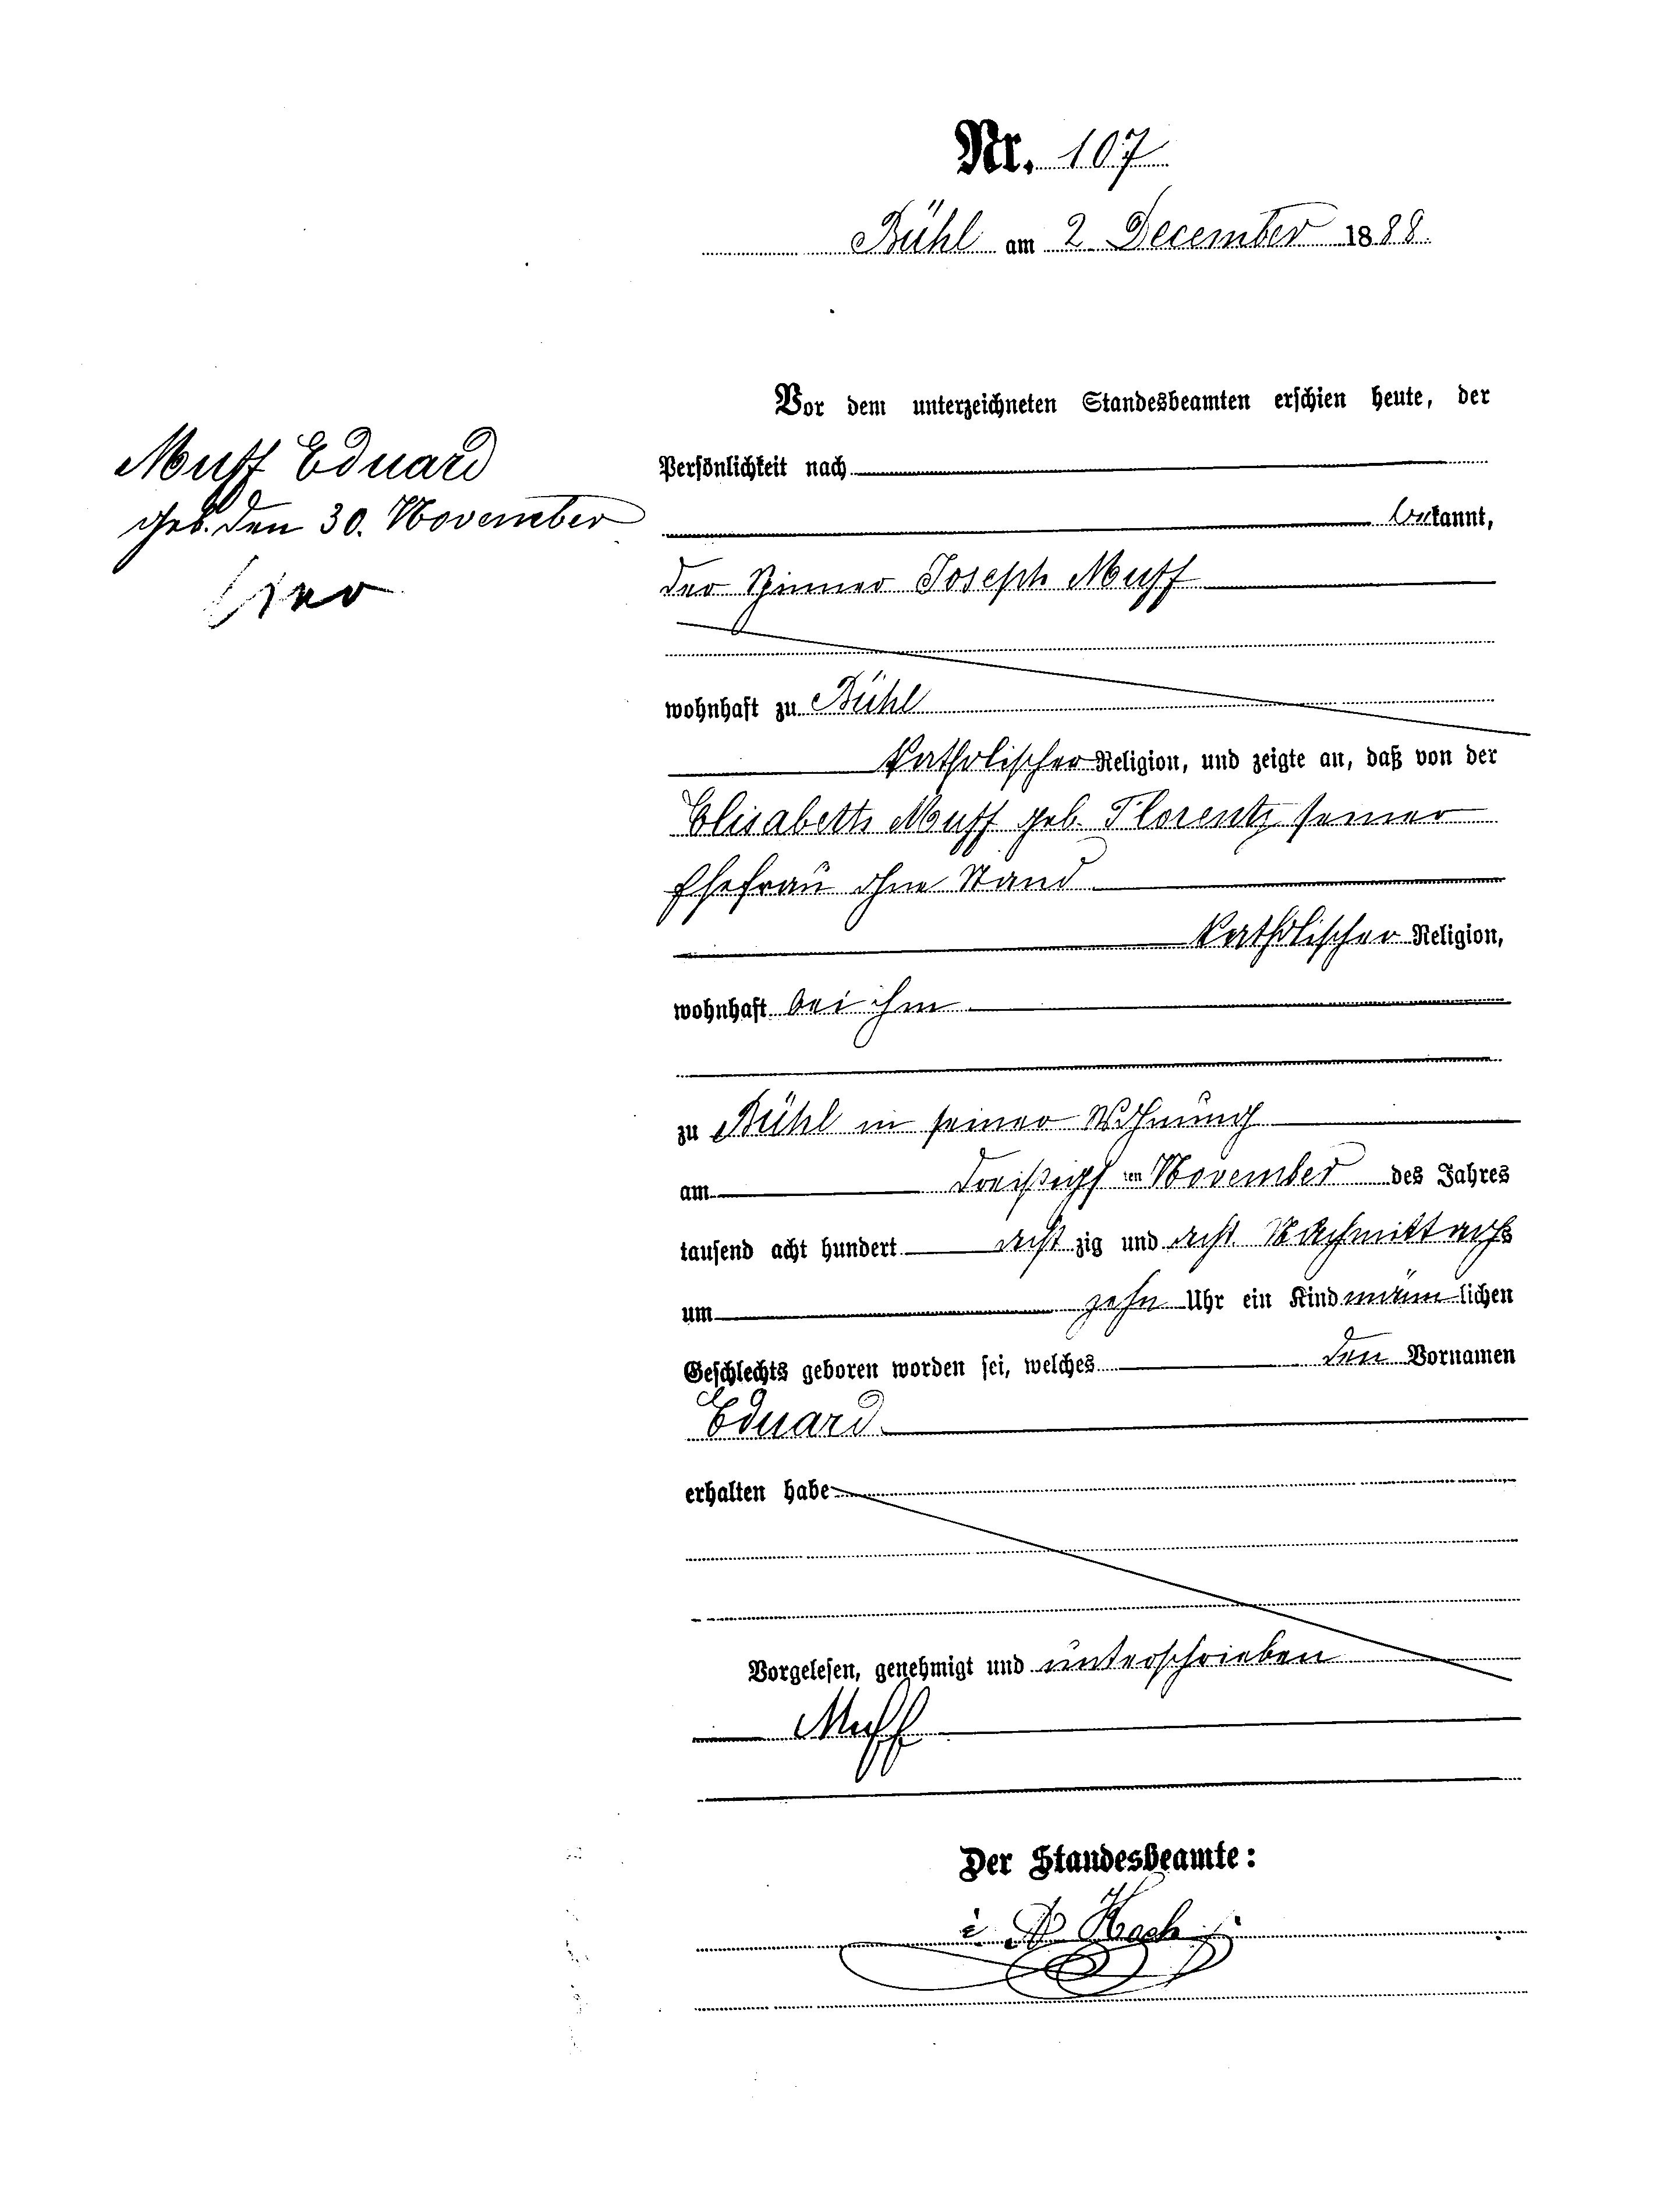 Nr. 107
Bühl am 2 December 1888.
Vor dem unterzeichneten Standesbeamten erschien heute, der
Persönlichkeit nach
bekannt,
der Spinner Joseph Muff
wohnhaft zu Bühl
katholischer Religion, und zeigte an, daß von der
Elisabeth Muff geb. Florentz seiner
Ehefrau ohne Stand
katholischer Religion,
wohnhaft bei ihm
zu Bühl in seiner Wohnung
am dreißigsten November des Jahres
tausend acht hundert acht zig und acht Nachmittags
um zehn Uhr ein Kind männlichen
Geschlechts geboren worden sei, welches den Vornamen
Eduard
erhalten habe
Vorgelesen, genehmigt und unterschrieben
Muff
Der Standesbeamte:
Hoch
Muff Eduard
geb. den 30. November